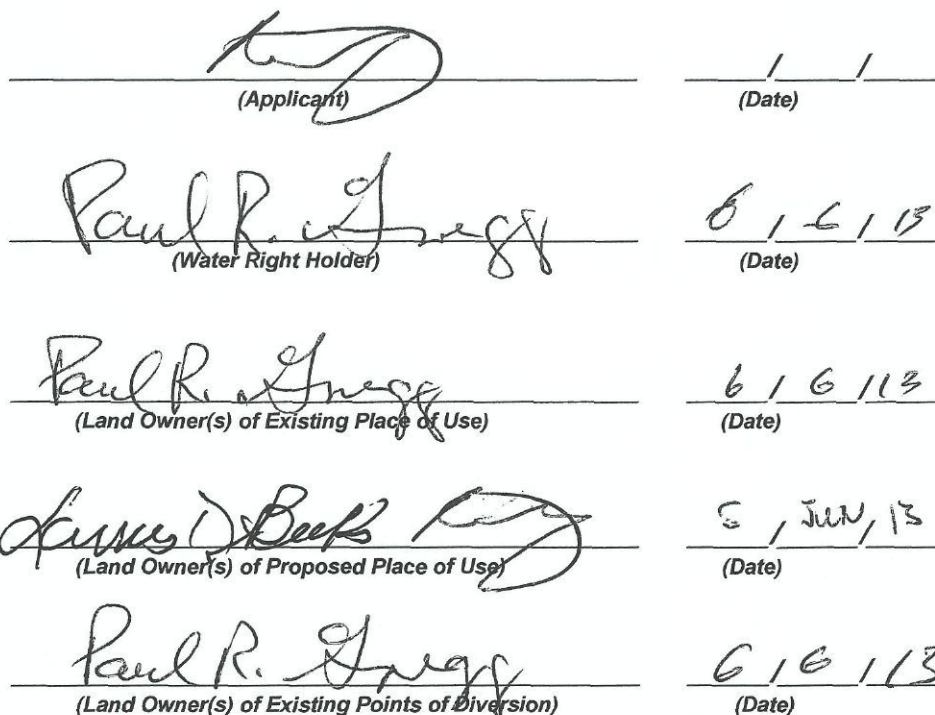 / /
(Applicant) (Date)
Paul R. Gregg 6 / 6 / 13
(Water Right Holder) (Date)
Paul R. Gregg 6 / 6 / 13
(Land Owner(s) of Existing Place of Use) (Date)
James D. Beeks / JUN / 13
(Land Owner(s) of Proposed Place of Use) (Date)
Paul R. Gregg 6 / 6 / 13
(Land Owner(s) of Existing Points of Diversion) (Date)